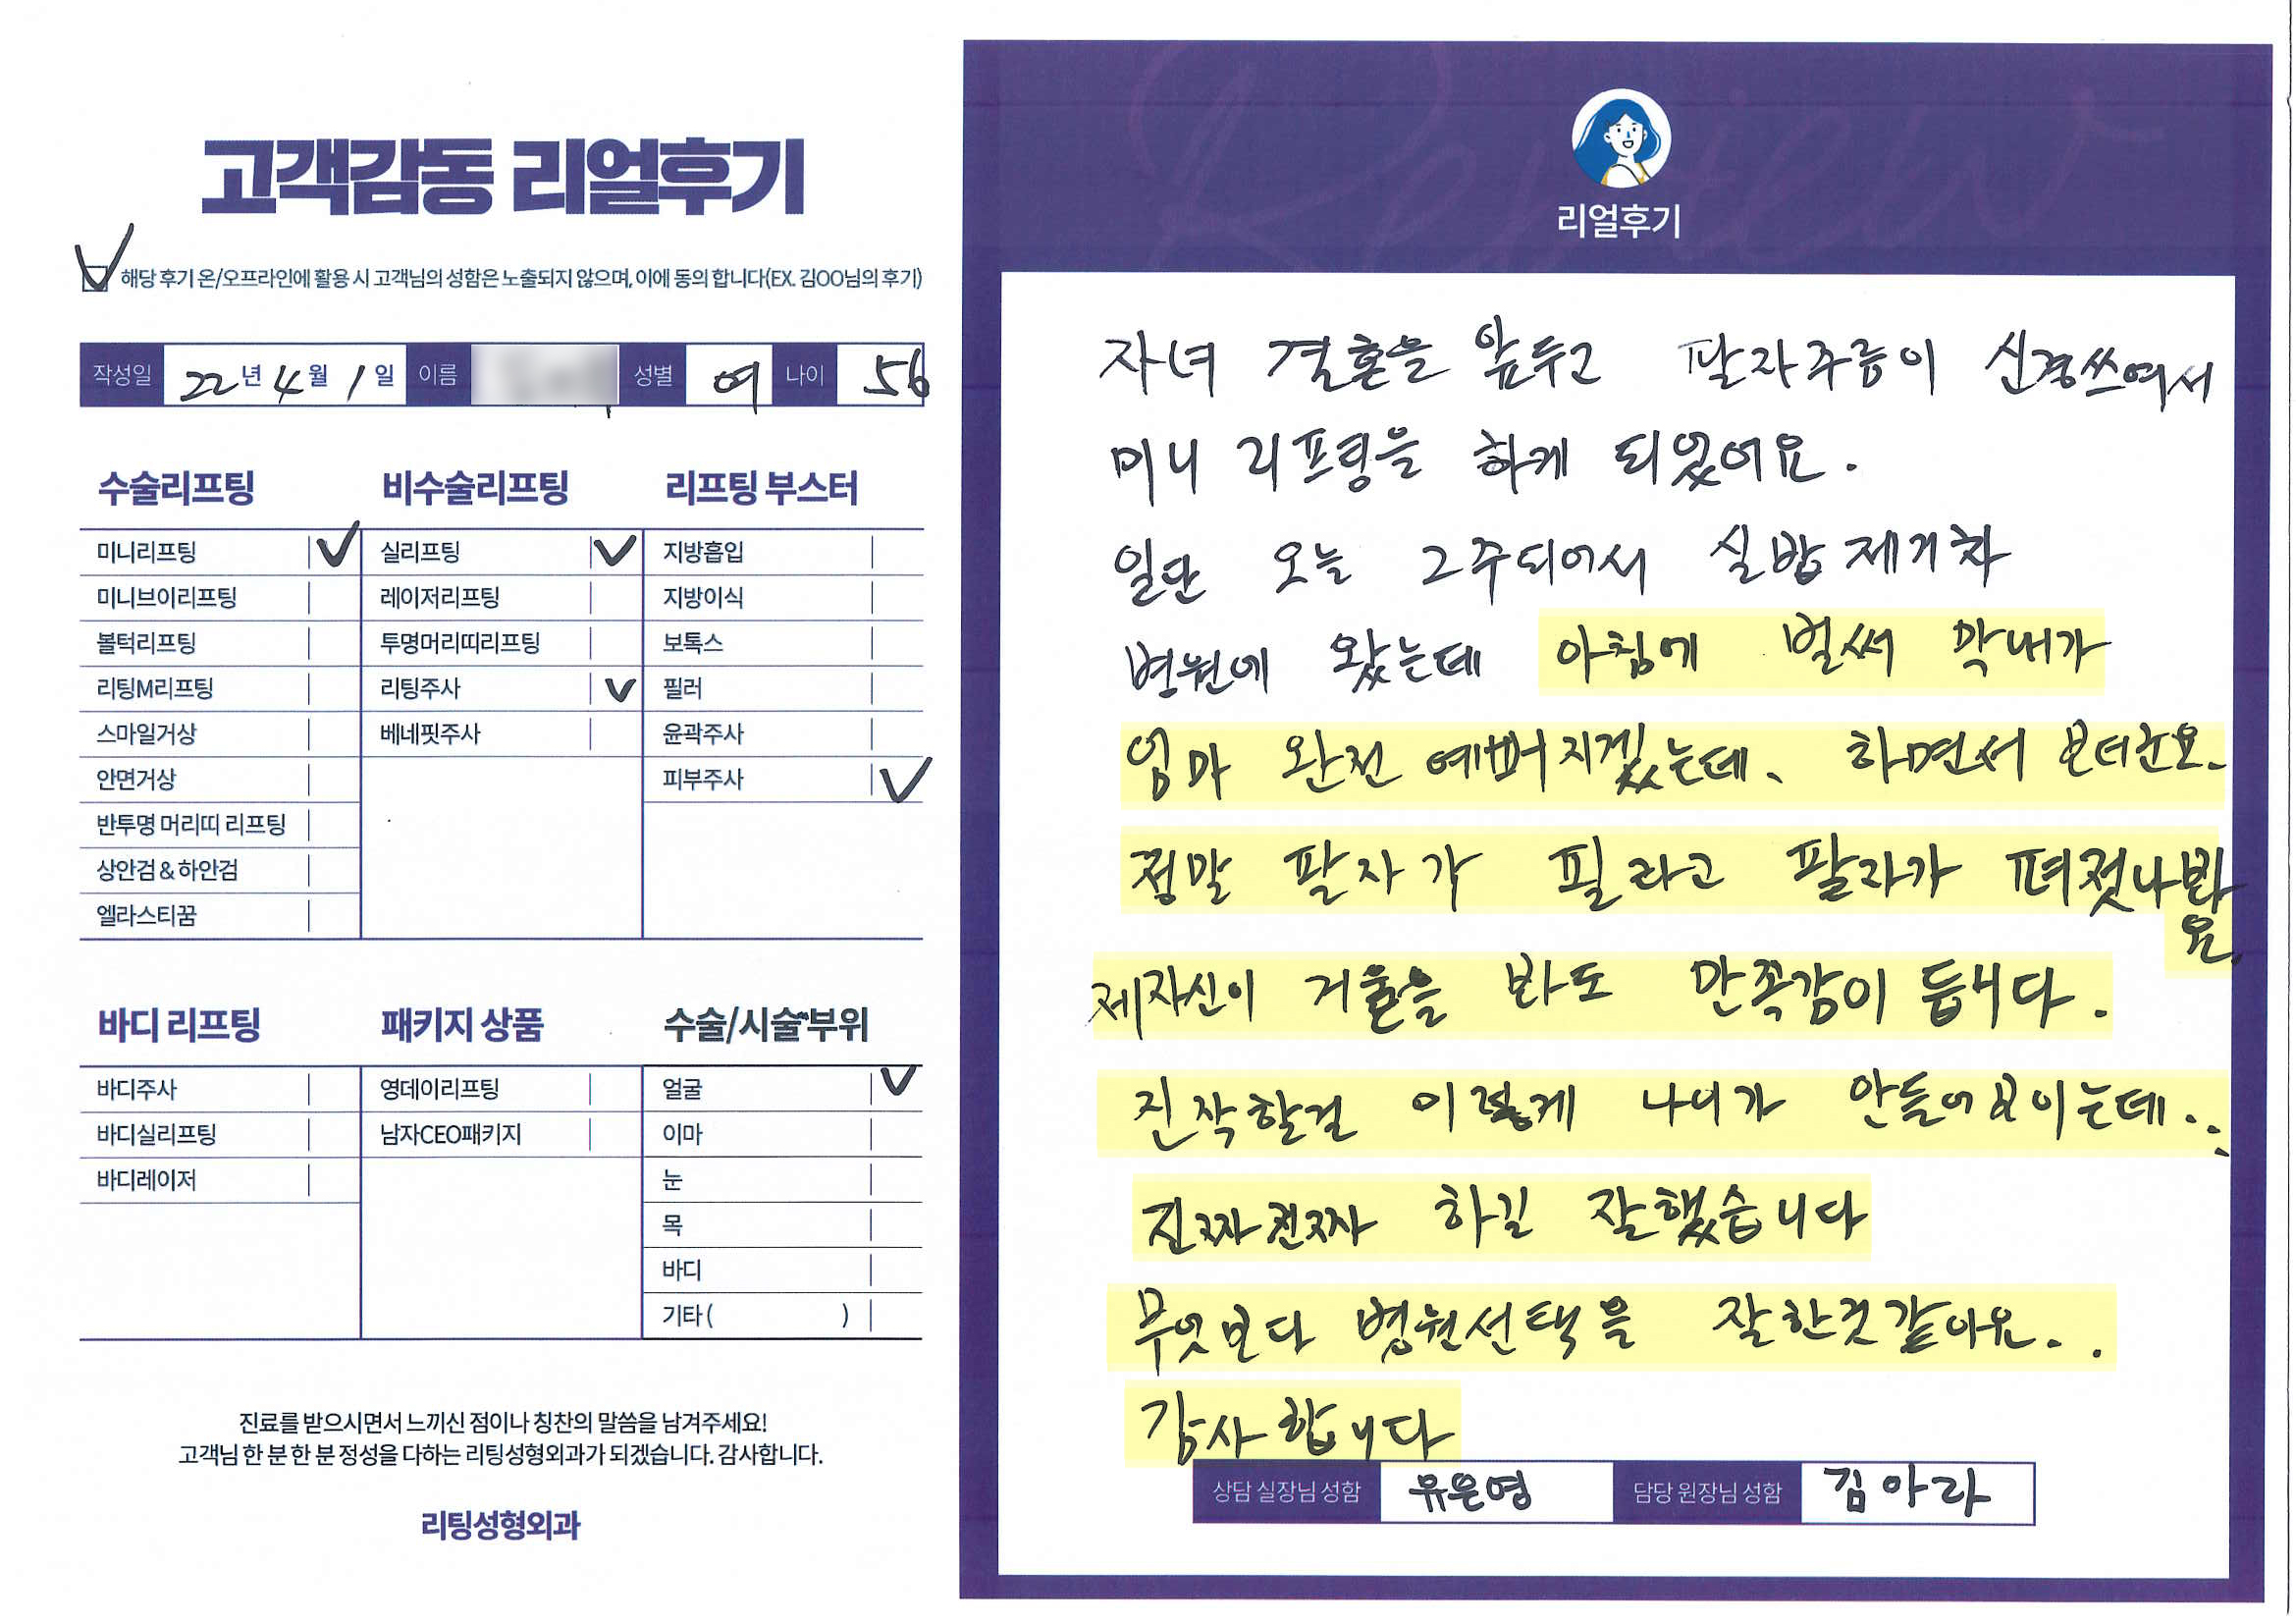 고객감동 리얼후기
해당 후기 온/오프라인에 활용 시 고객님의 성함은 노출되지 않으며, 이에 동의 합니다(EX. 김OO님의 후기)
작성일 22년 4월 1일 이름 성별 여 나이 56
수술리프팅
미니리프팅
미니브이리프팅
볼턱리프팅
리팅M리프팅
스마일거상
안면거상
반투명 머리띠 리프팅
상안검 & 하안검
엘라스티꿈
비수술리프팅
실리프팅
레이저리프팅
투명머리띠리프팅
리팅주사
베네핏주사
리프팅 부스터
지방흡입
지방이식
보톡스
필러
윤곽주사
피부주사
바디 리프팅
바디주사
바디실리프팅
바디레이저
패키지 상품
영데이리프팅
남자CEO패키지
수술/시술부위
얼굴
이마
눈
목
바디
기타 ( )
진료를 받으시면서 느끼신 점이나 칭찬의 말씀을 남겨주세요!
고객님 한 분 한 분 정성을 다하는 리팅성형외과가 되겠습니다. 감사합니다.
리팅성형외과
Review
리얼후기
자녀 결혼을 앞두고 팔자주름이 신경쓰여서
미니 리프팅을 하게 되었어요.
일단 오늘 2주되어서 실밥제거차
병원에 왔는데 아침에 벌써 막내가
엄마 완전 예뻐지겠는데. 하면서 보더군요.
정말 팔자가 필라고 팔자가 펴졌나봐
요.
제자신이 거울을 봐도 만족감이 듭니다.
진작할걸 이렇게 나이가 안들어보이는데..
진짜진짜 하길 잘했습니다
무엇보다 병원선택을 잘한것같아요..
감사합니다
상담 실장님 성함 유은영 담당 원장님 성함 김아라